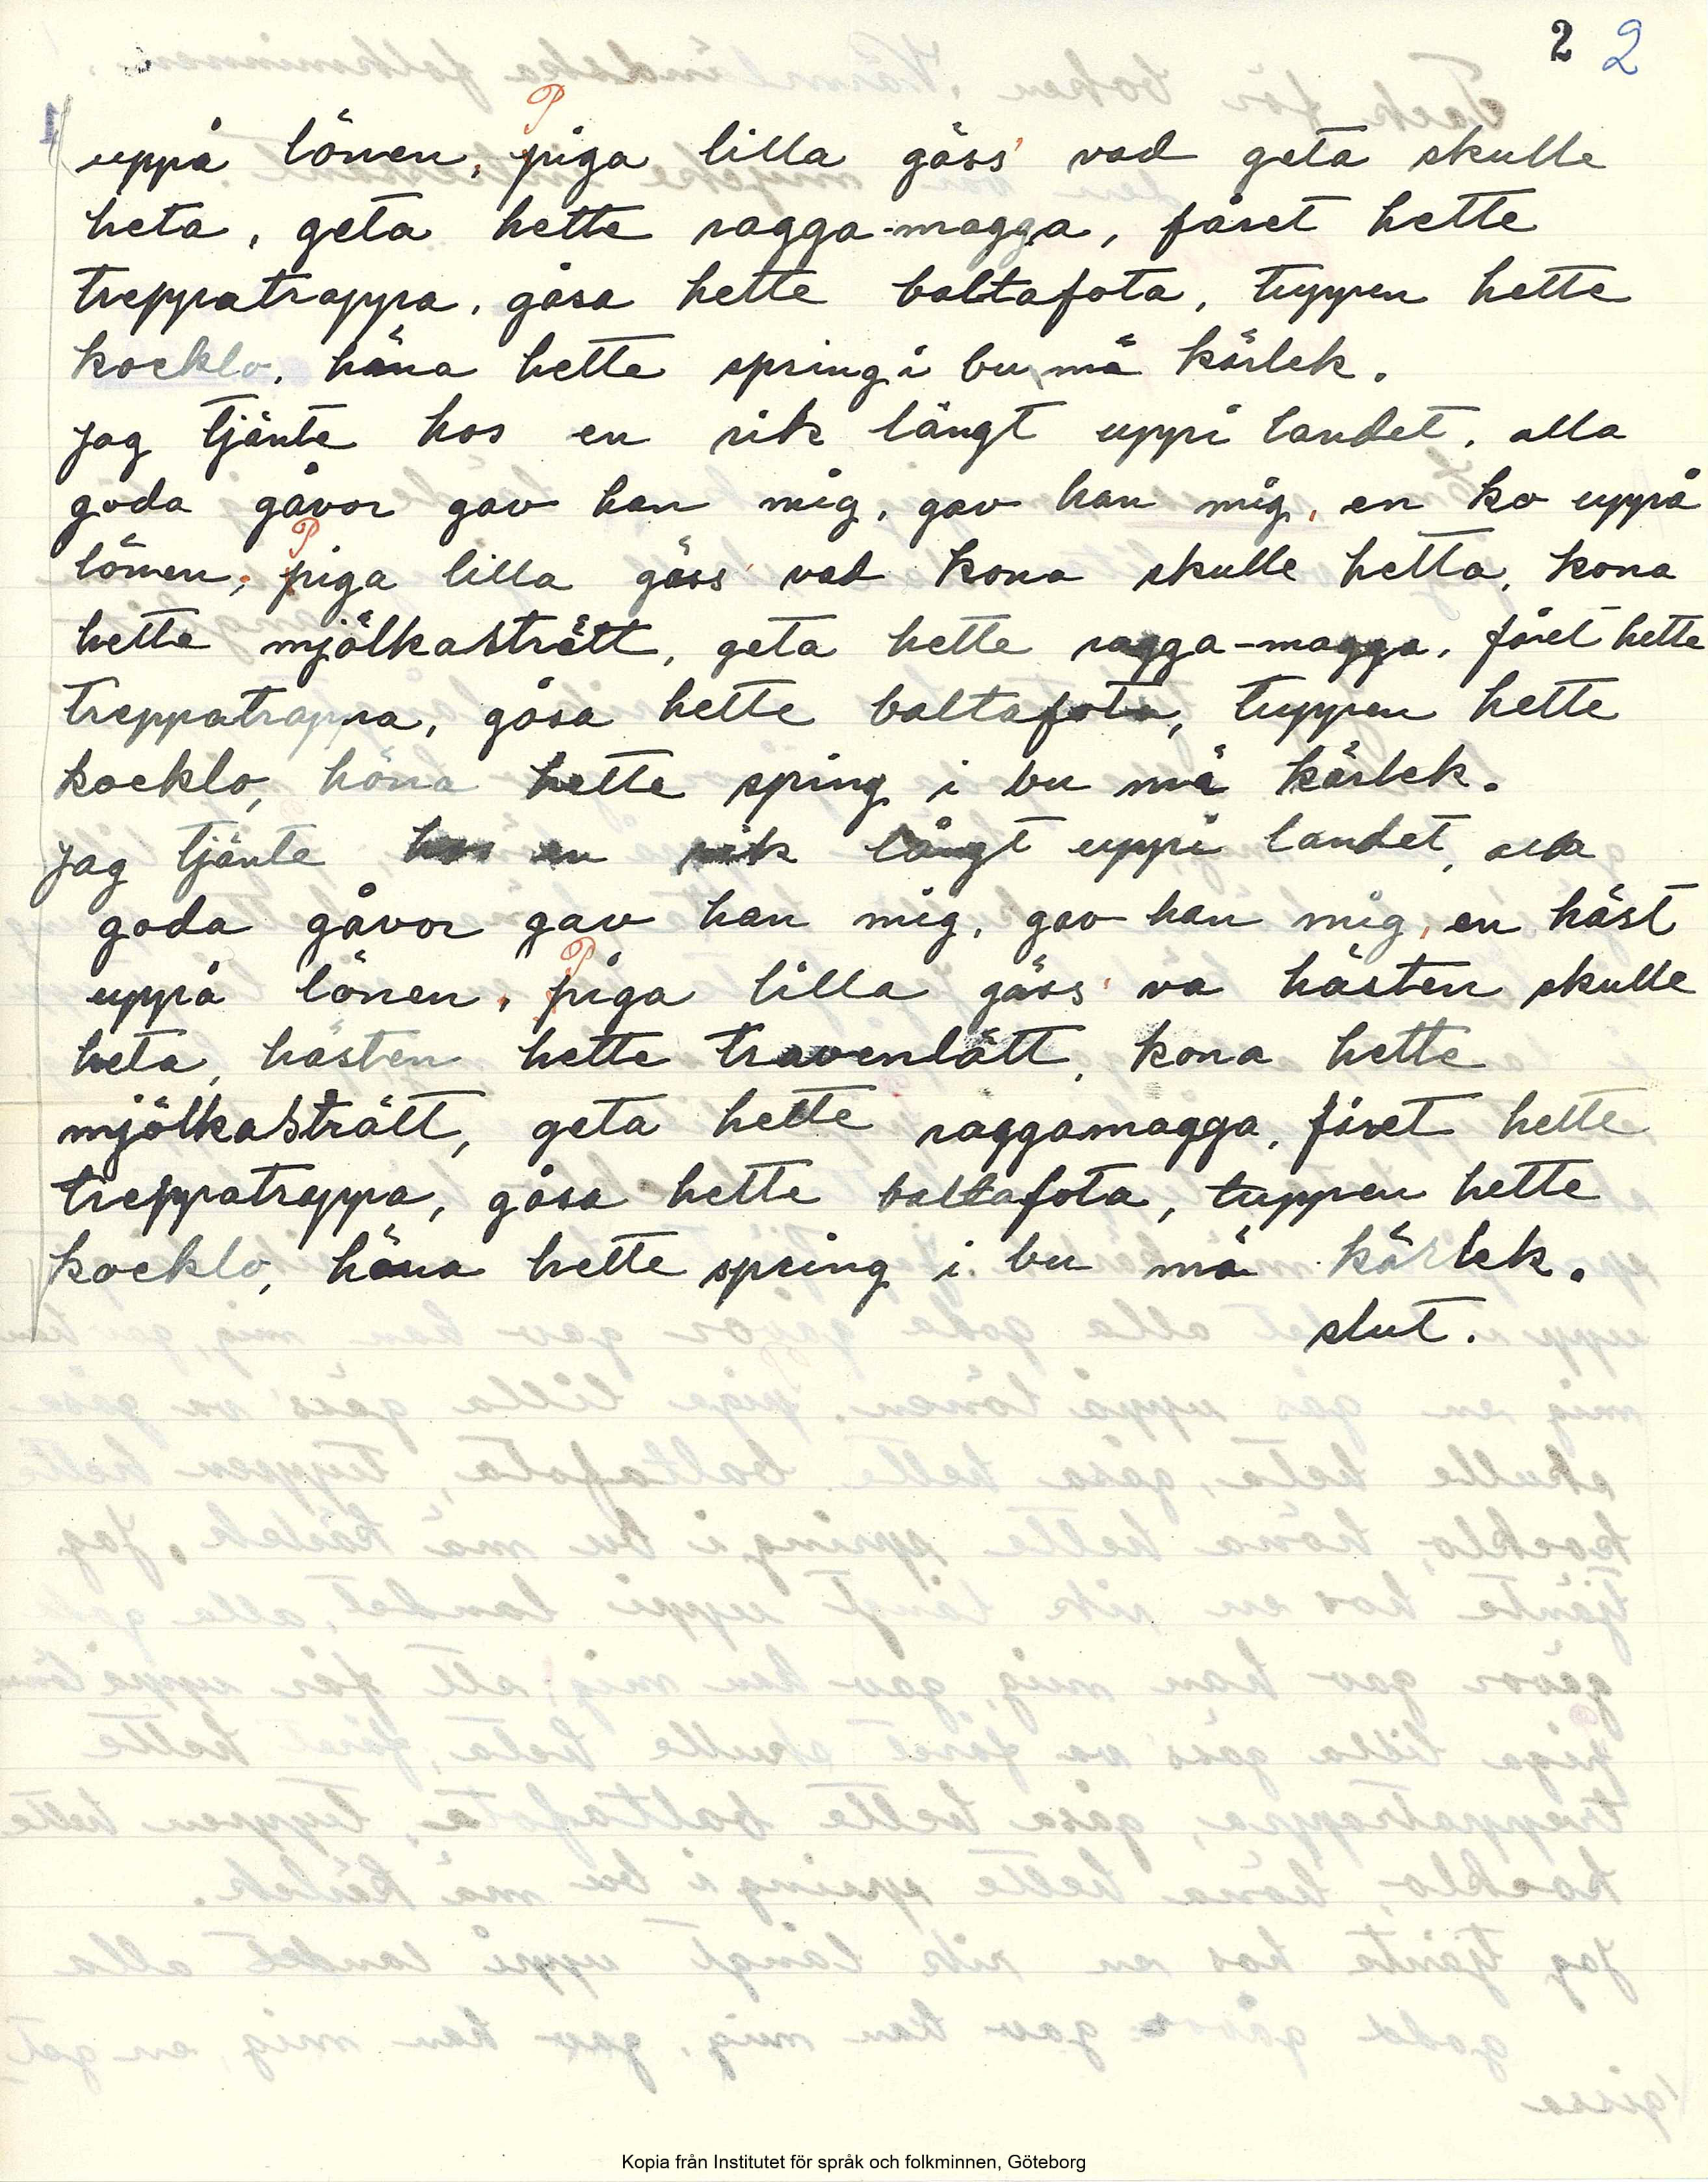 2 2
uppå lönen, piga lilla gäss' vad geta skulle
heta, geta hette ragga-magga, fåret hette
treppatrappa, gåsa hette baltafota, tuppen hette
kocklo, höna hette spring i bu mä kärlek.
Jag tjänte hos en rik långt uppi landet, alla
goda gåvor gav han mig, gav han mig, en ko uppå
lönen, piga lilla gäss' vad kona skulle hetta, kona
hette mjölkaSträtt, geta hette ragga-magga, fåret hette
treppatrappa, gåsa hette baltafota, tuppen hette
kocklo, höna hette spring i bu mä kärlek.
Jag tjänte hos en rik långt uppi landet, alla
goda gåvor gav han mig, gav han mig, en häst
uppå lönen, piga lilla gäss' va hästen skulle
heta, hästen hette travenlätt, kona hette
mjölkaSträtt, geta hette raggamagga, fåret hette
treppatrappa, gåsa hette baltafota, tuppen hette
kocklo, höna hette spring i bu mä kärlek.
slut.
Kopia från Institutet för språk och folkminnen, Göteborg